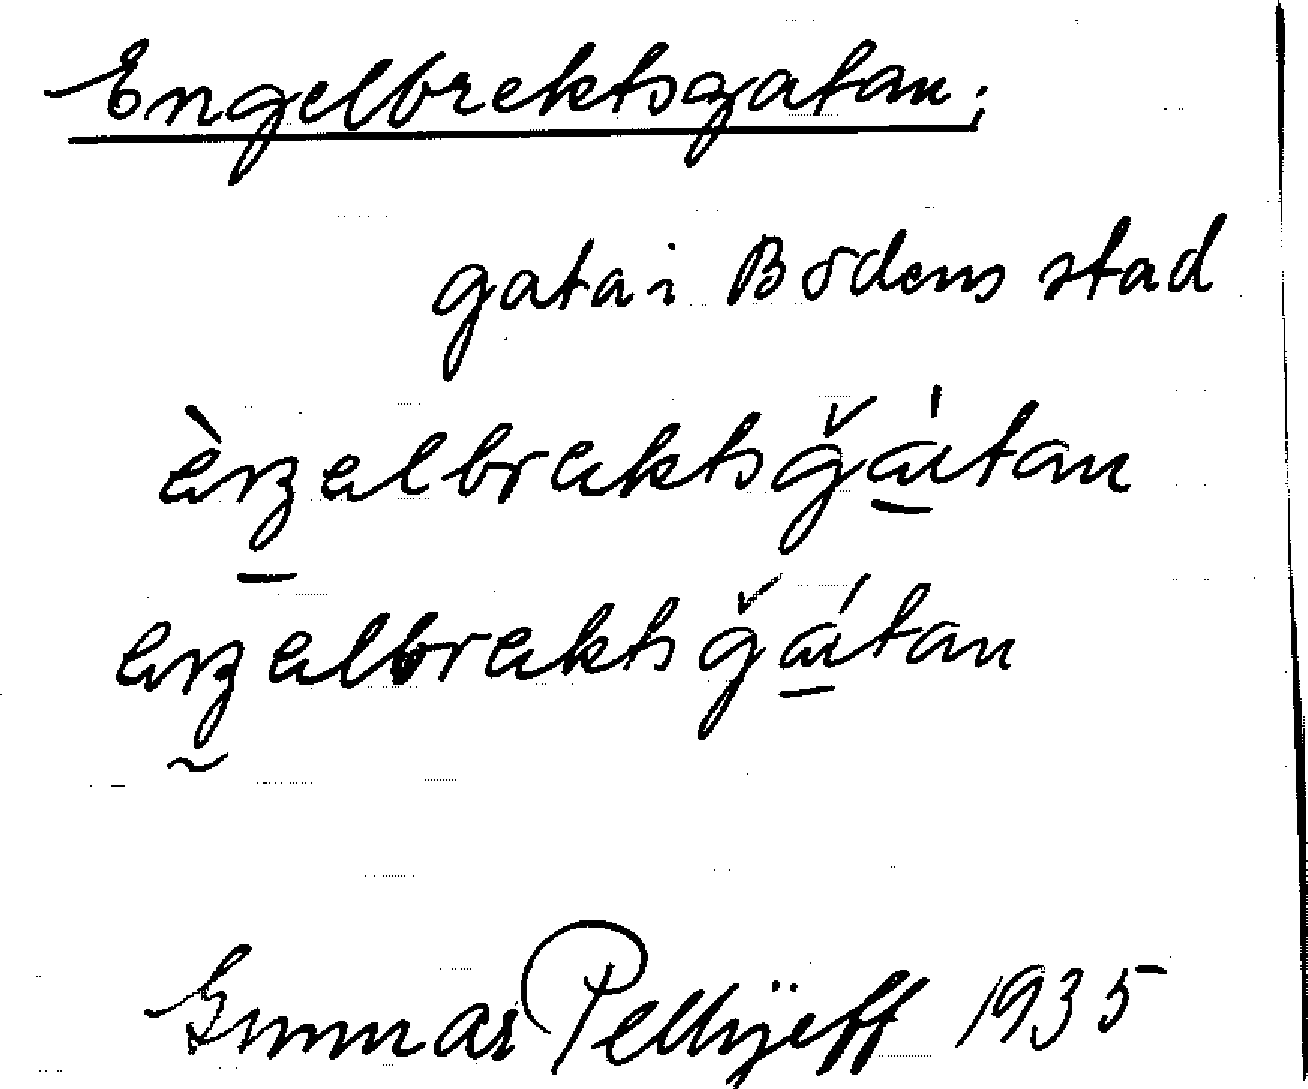 Engelbrektsgatan;
gata i Bodens stad
èŋəlbrektsğátan
eŋəlbrektsğátan
Gunnar Pellijeff 1935